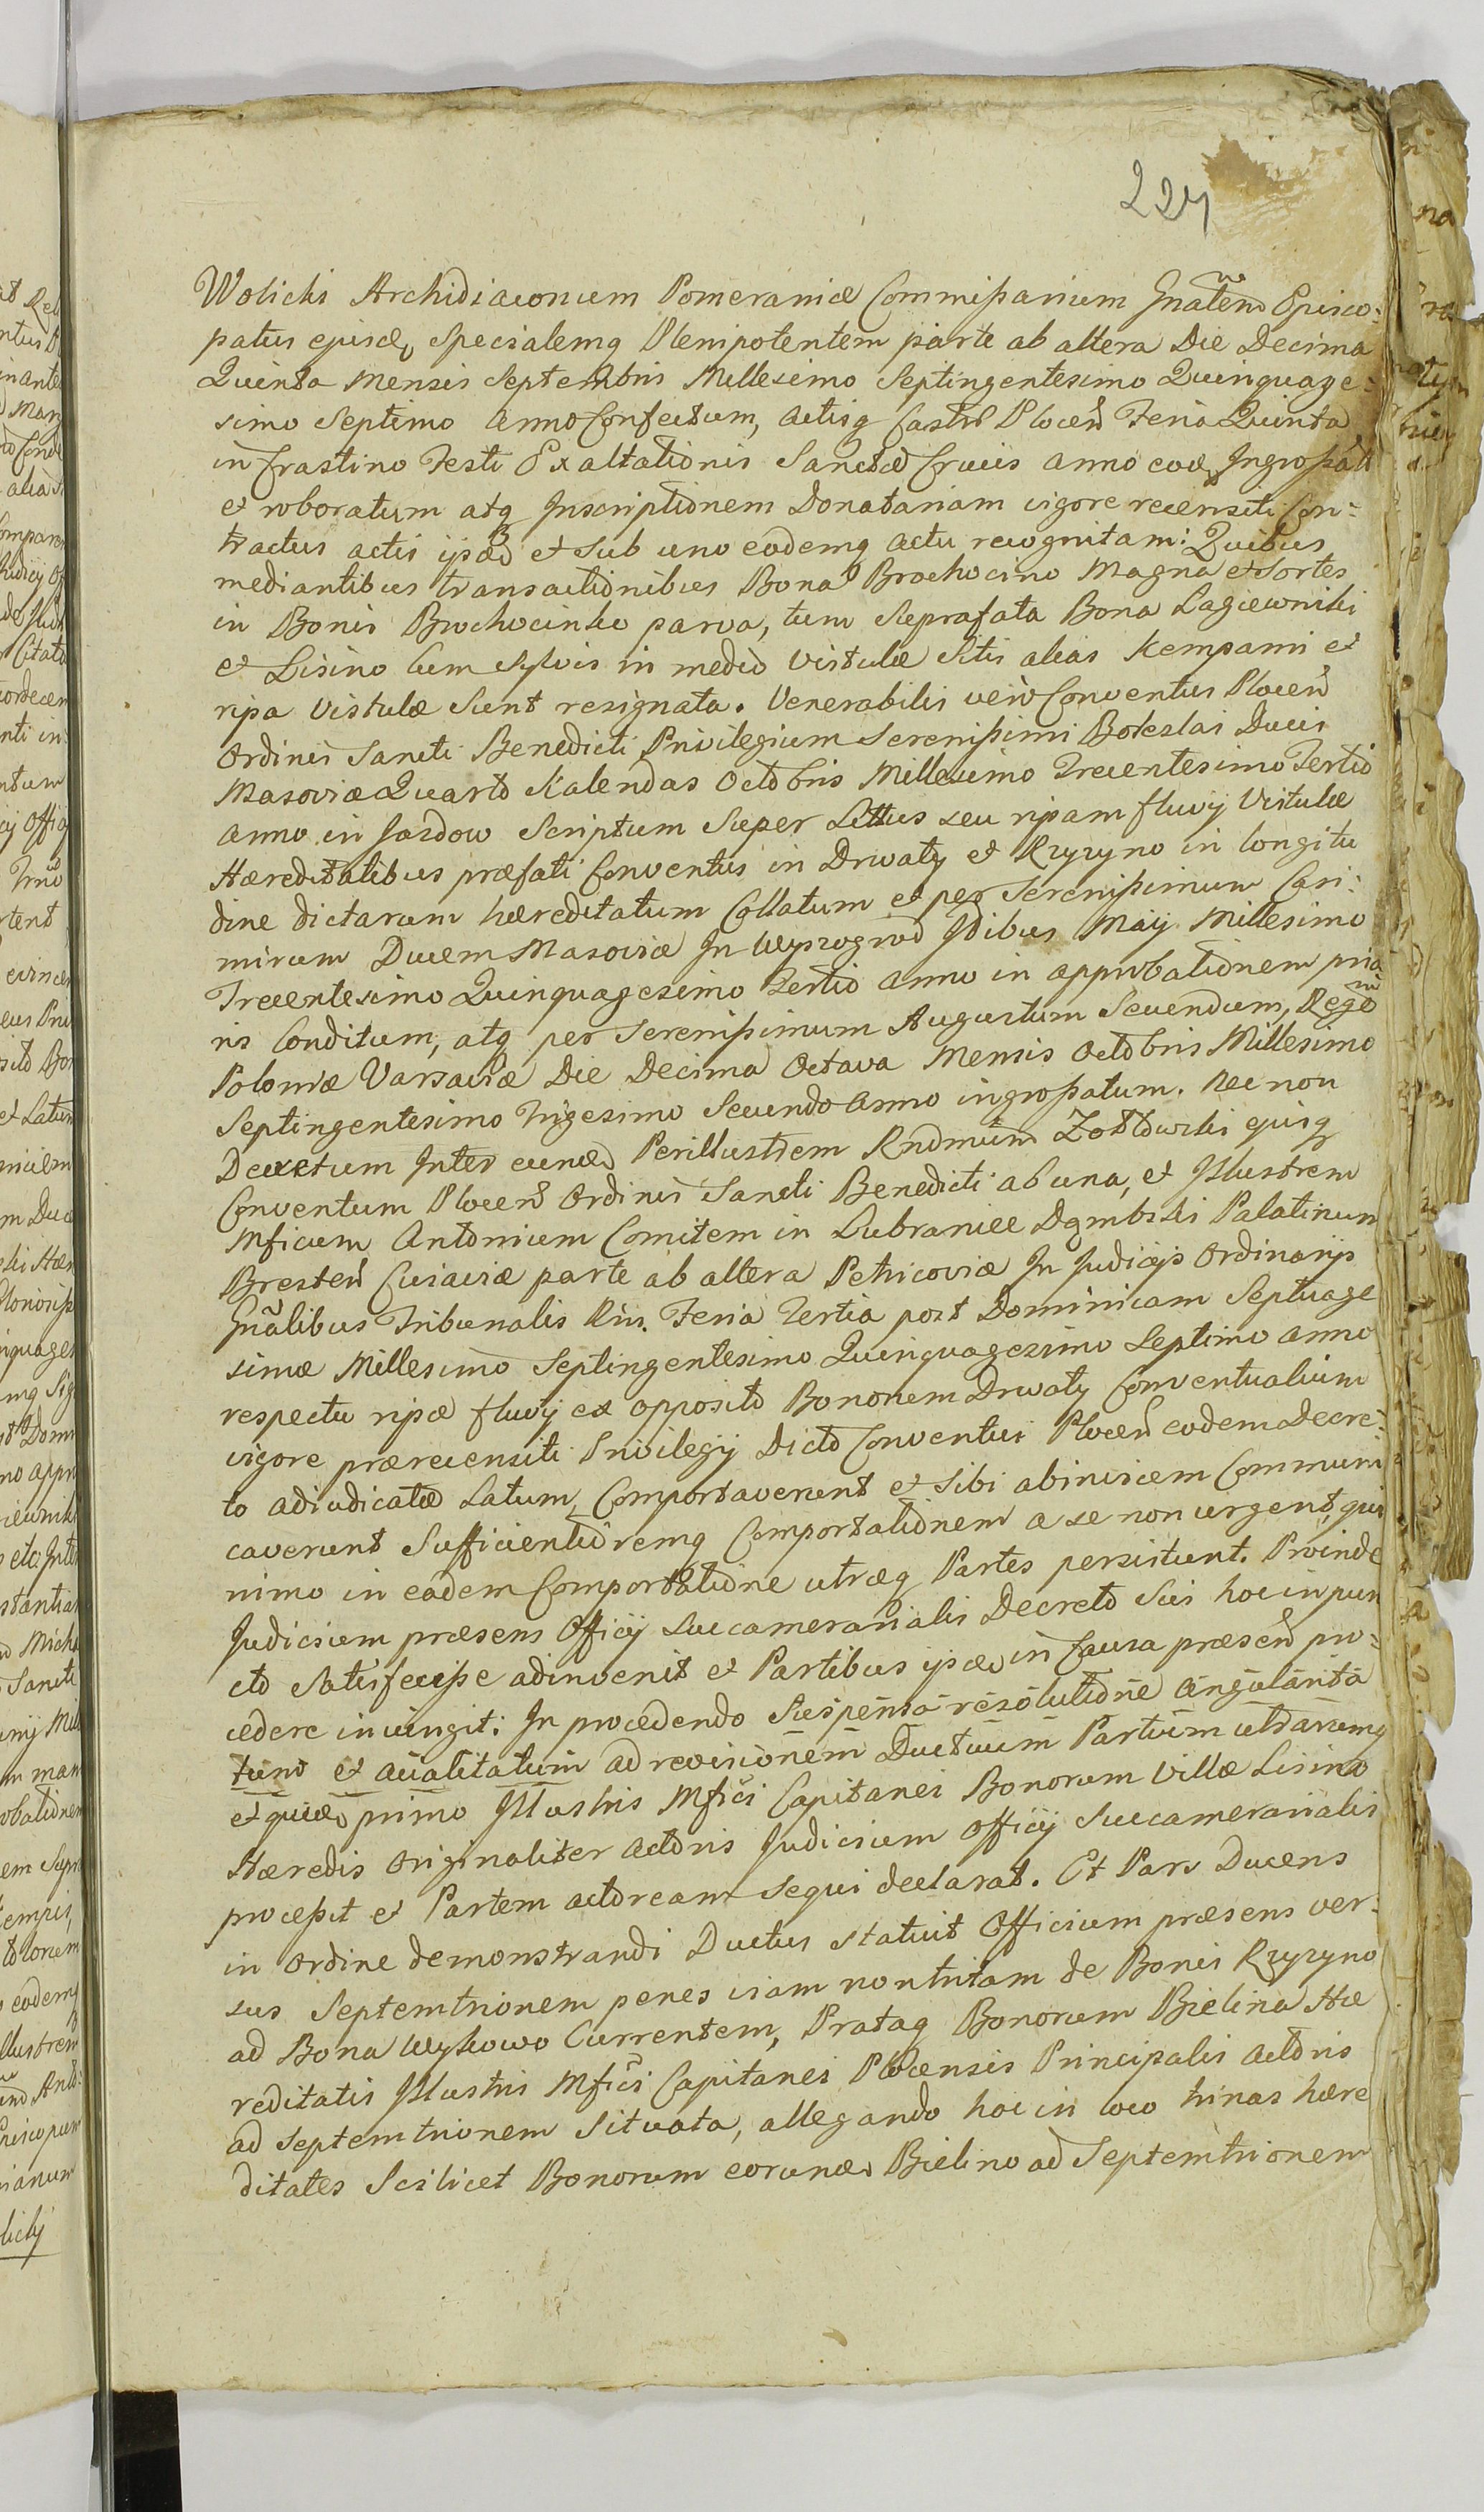 227
Wolicki Archidiaconum Pomeraniæ Commissarium Gnalem Episco:
patus ejusd, specialemq Plenipotentem parte ab altera Die Decima
Quinta Mensis Septembris Millesimo Septingentesimo Quinquage:
simo Septimo Anno Confectum, actisq Castri Plocen Feria Quinta
in Crastino Festi Exaltationis Sanctæ Crucis anno eod Ingrossati
et roboratum atq Inscriptionem Donatariam vigore recensiti Con:
tractus actis ijsd et sub uno eodemq actu recognitam: Quibus
mediantibus transactionibus Bona Brochocino Magna et Sortes
in Bonis Brochocinko parva, tum Suprafata Bona Lagiewniki
et Lisino cum Sylvis in medio Vistulæ Sitis alias Kempami et
ripa Vistulæ Sunt resignata. Venerabilis vero Conventus Plocen
Ordinis Sancti Benedicti Privilegium Serenissimi Boleslai Ducis
Masoviæ Quarto Kalendas Octobris Millesimo Trecentesimo Tertio
anno in Jazdow Scriptum Super Littus seu ripam fluvij Vistulæ
Hæreditatibus præfati Conventus in Drwaty et Rzyzyno in longitu
dine dictarum hæreditatum Collatum et per Serenissimum Casi:
mirum Ducem Masoviæ In Wyszogrod Idibus Maij Millesimo
Trecentesimo Quinquagesimo Tertio anno in approbationem prio
ris Conditum, atq per Serenissimum Augustum Secundum, Regem
Poloniæ Varsaviæ Die Decima Octava Mensis Octobris Millesimo
Septingentesimo Trigesimo Secundo anno ingrossatum. Nec non
Decretum Inter eund Perillustrem Rndmum Zołtowski ejusq
Conventum Plocen Ordinis Sancti Benedicti ab una, et Illustrem
Mficum Antonium Comitem in Lubraniec Dąmbski Palatinum
Bresten Cuiaviæ parte ab altera Petricoviæ In Judicijs Ordinarijs
Gnalibus Tribunalis Rni. Feria Tertia post Dominicam Septuage
simæ Millesimo Septingentesimo Quinquagesimo Septimo anno
respectu ripæ fluvij ex opposito Bonorum Drwaty Conventualium
vigore prærecensiti Privilegij Dicto Conventui Plocen eodem Decre:
to adiudicatæ Latum, Comportaverunt et sibi abinvicem Communi
caverunt Sufficientioremq Comportationem a se non urgent, qui
nimo in eadem Comportatione utræq Partes persistunt. Proinde
Judicium præsens Officij Succamerarialis Decreto Sui hoc in pun
cto Satisfecisse adinvenit et Partibus ijsd in Causa præsen pro:
cedere iniungit: In procedendo Suspensa resolutione angularita
tum et aciialitatum ad revisionem Ductuum Partium utrarumq
et quid primo Illustris Mfici Capitanei Bonorum Villæ Lisino
Hæredis Originaliter actoris Judicium Officij Succamerarialis
processit et Partem actoream sequi declarat. Et Pars Ducens
in Ordine demonstrandi Ductus statuit Officium præsens ver:
sus Septemtrionem penes viam non tritam de Bonis Rzyzyno
ad Bona Wykowo Currentem, Prataq Bonorum Bielina Hæ
reditatis Illustris Mfici Capitanei Plocensis Principalis actoris
ad Septemtrionem Situata, allegando hoc in loco trinas hære
ditates Scilicet Bonorum eorund Bielino ad Septemtrionem